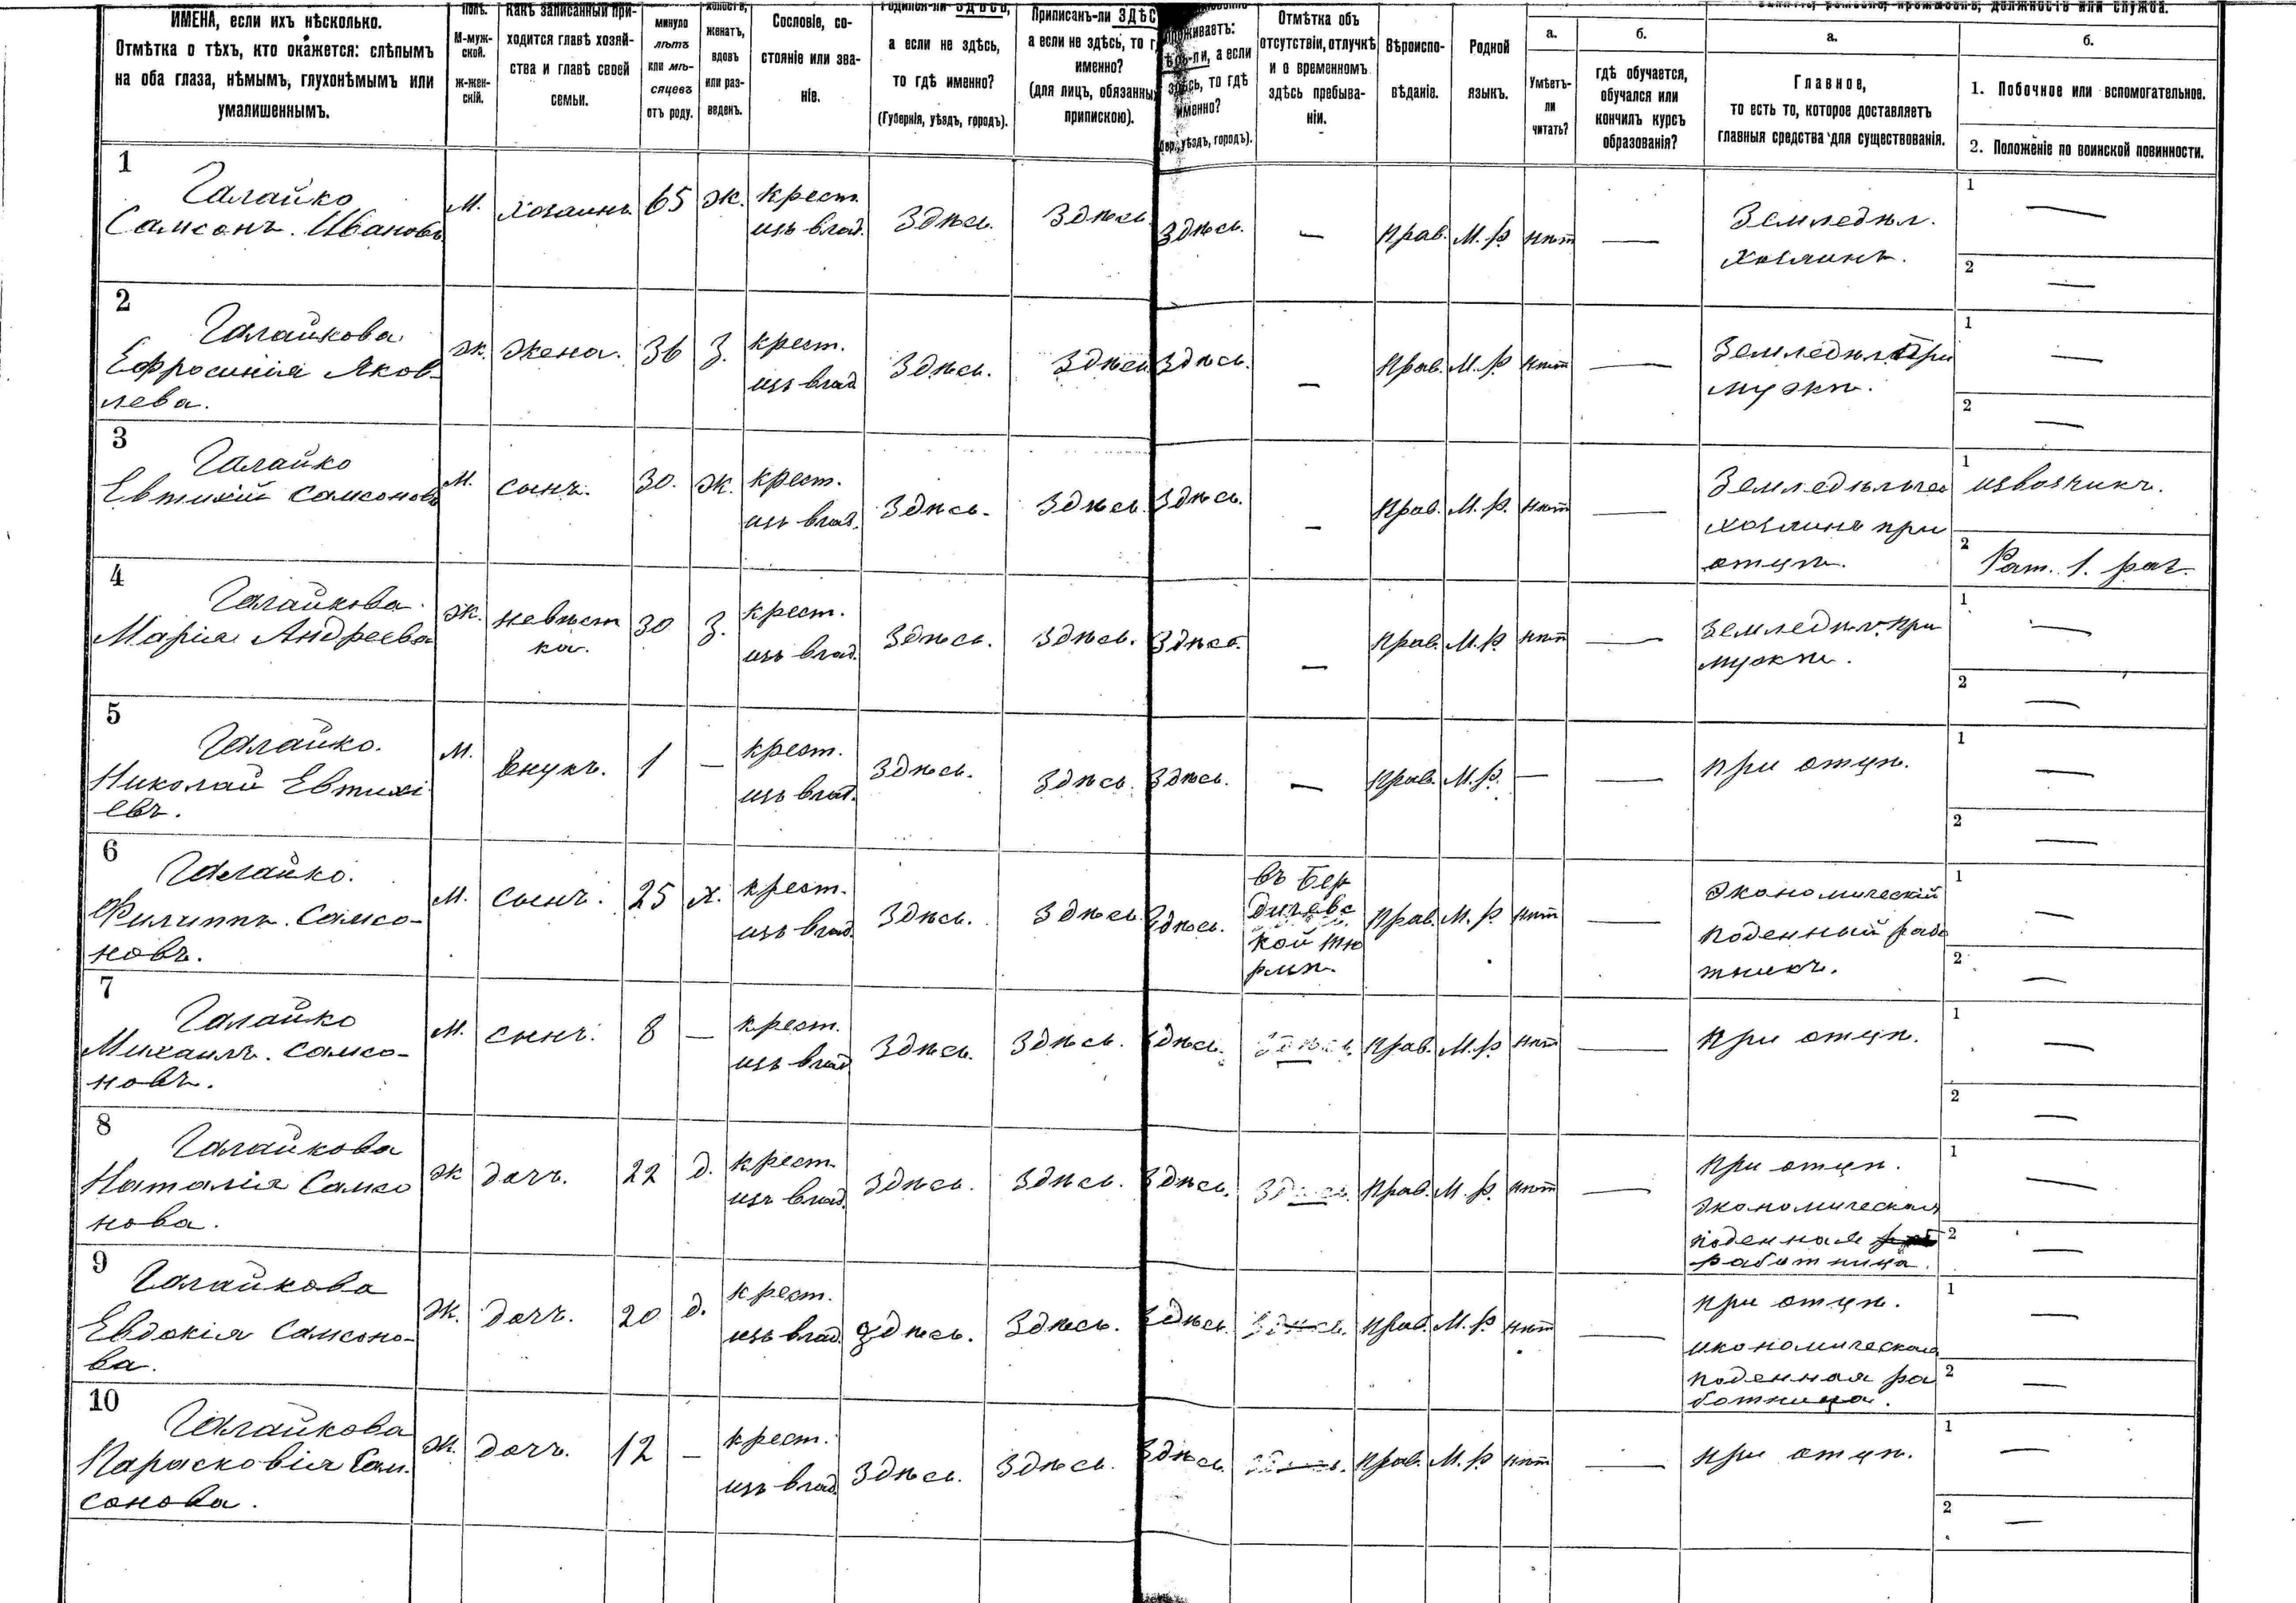 ИМЕНА, если ихъ нѣсколько.
Отмѣтка о тѣхъ, кто окажется: слѣпымъ
на оба глаза, нѣмымъ, глухонѣмымъ или
умалишеннымъ.
М-муж-
ской.
ж-жен-
скій.
какъ записанный при-
ходится главѣ хозяй-
ства и главѣ своей
семьи.
минуло
лѣтъ
или мѣ-
сяцевъ
отъ роду.
женатъ,
вдовъ
или раз-
веденъ.
Сословіе, со-
стояніе или зва-
ніе.
а если не здѣсь,
то гдѣ именно?
(Губернія, уѣздъ, городъ).
Приписанъ-ли ЗДѢС
а если не здѣсь, то г
именно?
(для лицъ, обязанны
припискою).
живаетъ:
ли, а если
здѣсь, то гдѣ
именно?
уѣздъ, городъ).
Отмѣтка объ
отсутствіи, отлучкѣ
и о временномъ
здѣсь пребыва-
ніи.
Вѣроиспо-
вѣданіе.
Родной
языкъ.
а.
Умѣетъ-
ли
читать?
б.
гдѣ обучается,
обучался или
кончилъ курсъ
образованія?
а.
Главное,
то есть то, которое доставляетъ
главныя средства для существованія.
б.
1. Побочное или вспомогательное.
2. Положеніе по воинской повинности.
1
Галайко
Самсонъ. Ивановъ
М. хозаинъ 65 ж. крест. изъ влад. Здѣсь. Здѣсь. Здѣсь. — Прав. М. р нѣт —
Земледѣл.
хозяинъ.
1 —
2 —
2
Галайкова
Ефросинія Яков-
лева.
ж. жена. 36 з. крест. изъ влад Здѣсь. Здѣсь Здѣсь. — Прав. М. р нѣт —
Земледѣл. При
мужѣ.
1 —
2 —
3
Галайко
Евтихій Самсоновъ
М. сынъ. 30. ж. крест. изъ влад. Здѣсь. Здѣсь. Здѣсь. — Прав. М. р. нѣт —
хозяинъ при
отцѣ.
1 извозчикъ.
2 Рат. 1. раз.
4
Галайкова
Марія Андреева
ж. невѣст
ка. 30 з. крест. изъ влад. Здѣсь. Здѣсь. Здѣсь. — Прав. М. р. нѣт —
Земледѣл. при
мужѣ.
1 —
2 —
5
Галайко.
Николай Евтихі
евъ.
М. внукъ. 1 — крест. изъ влад. Здѣсь. Здѣсь. Здѣсь. — Прав. М. р. — —
при отцѣ.
1 —
2 —
6
Галайко.
Филиппъ. Самсо-
новъ.
М. сынъ. 25 х. крест. изъ влад. Здѣсь. Здѣсь Здѣсь.
въ Бер
дичевс
кой тю
рмѣ.
Прав. М. р нѣт —
Экономическій
поденный рабо
тникъ.
1 —
2 —
7
Галайко
Михаилъ. Самсо-
новъ.
М. сынъ. 8 — крест. изъ влад Здѣсь. Здѣсь. Здѣсь. Здѣсь. Прав. М. р нѣт —
при отцѣ.
1 —
2 —
8
Галайкова
Наталія Самсо
нова.
ж дочъ. 22 д. крест. изъ влад. Здѣсь. Здѣсь. Здѣсь. Здѣсь. Прав. М. р. нѣт —
при отцѣ.
экономическая
поденная
работница.
1 —
2 —
9
Галайкова
Евдокія Самсоно-
ва.
ж. дочъ. 20 д. крест. изъ влад. Здѣсь. Здѣсь. Здѣсь. Здѣсь. Прав. М. р нѣт —
при отцѣ.
икономическая
поденная ра
ботница.
1 —
2 —
10
Галайкова
Парасковія Сам.
сонова.
ж. дочъ. 12 — крест. изъ влад. Здѣсь. Здѣсь. Здѣсь. Здѣсь. Прав. М. р нѣт —
при отцѣ.
1 —
2 —